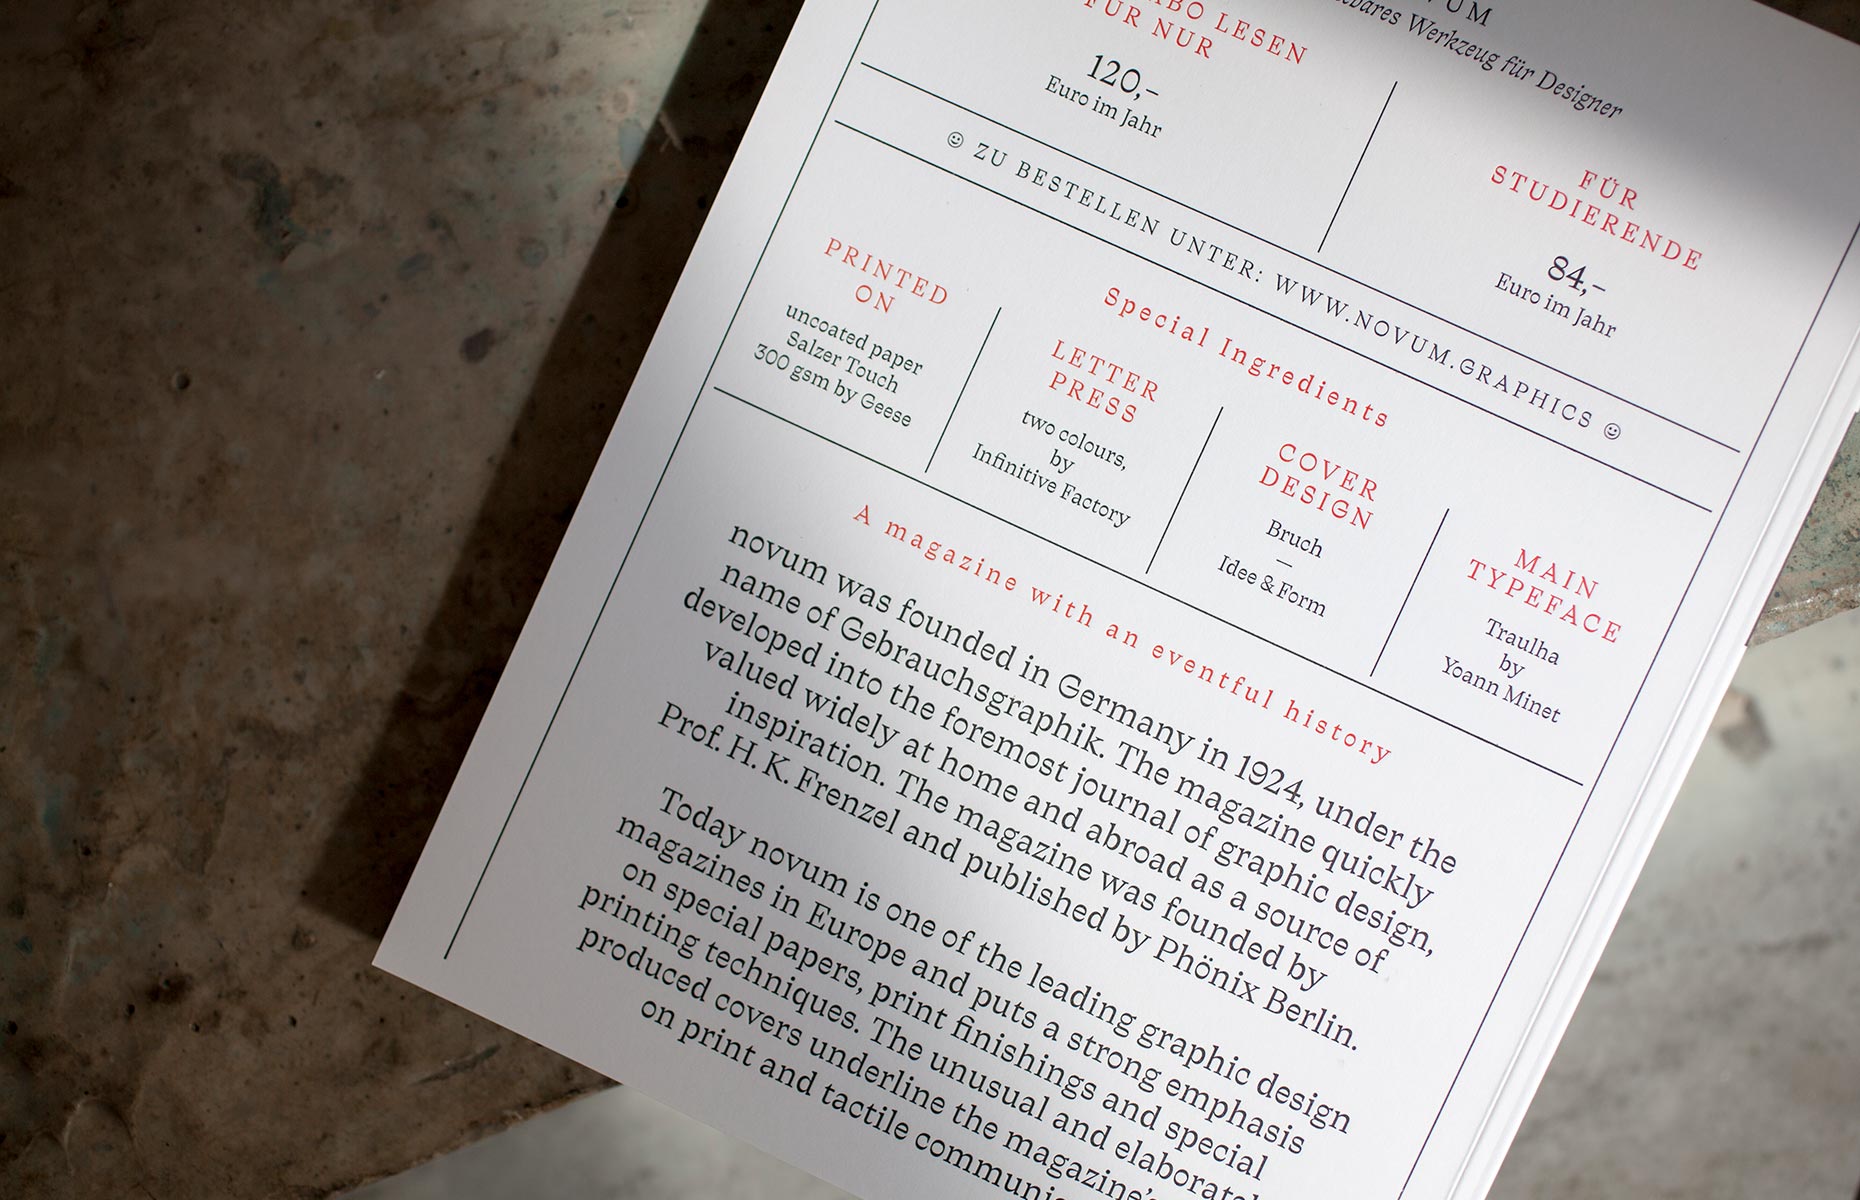 LESEN
FÜR NUR
120,–
Euro im Jahr
Werkzeug für Designer
FÜR
STUDIERENDE
84,–
Euro im Jahr
☺ ZU BESTELLEN UNTER: WWW.NOVUM.GRAPHICS ☺
Special Ingredients
PRINTED
ON
uncoated paper
Salzer Touch
300 gsm by Geese
LETTER
PRESS
two colours,
by
Infinitive Factory
COVER
DESIGN
Bruch
—
Idee & Form
MAIN
TYPEFACE
Traulha
by
Yoann Minet
A magazine with an eventful history
novum was founded in Germany in 1924, under the
name of Gebrauchsgraphik. The magazine quickly
developed into the foremost journal of graphic design,
valued widely at home and abroad as a source of
inspiration. The magazine was founded by
Prof. H. K. Frenzel and published by Phönix Berlin.
Today novum is one of the leading graphic design
magazines in Europe and puts a strong emphasis
on special papers, print finishings and special
printing techniques. The unusual and
produced covers underline the magazine's
on print and tactile